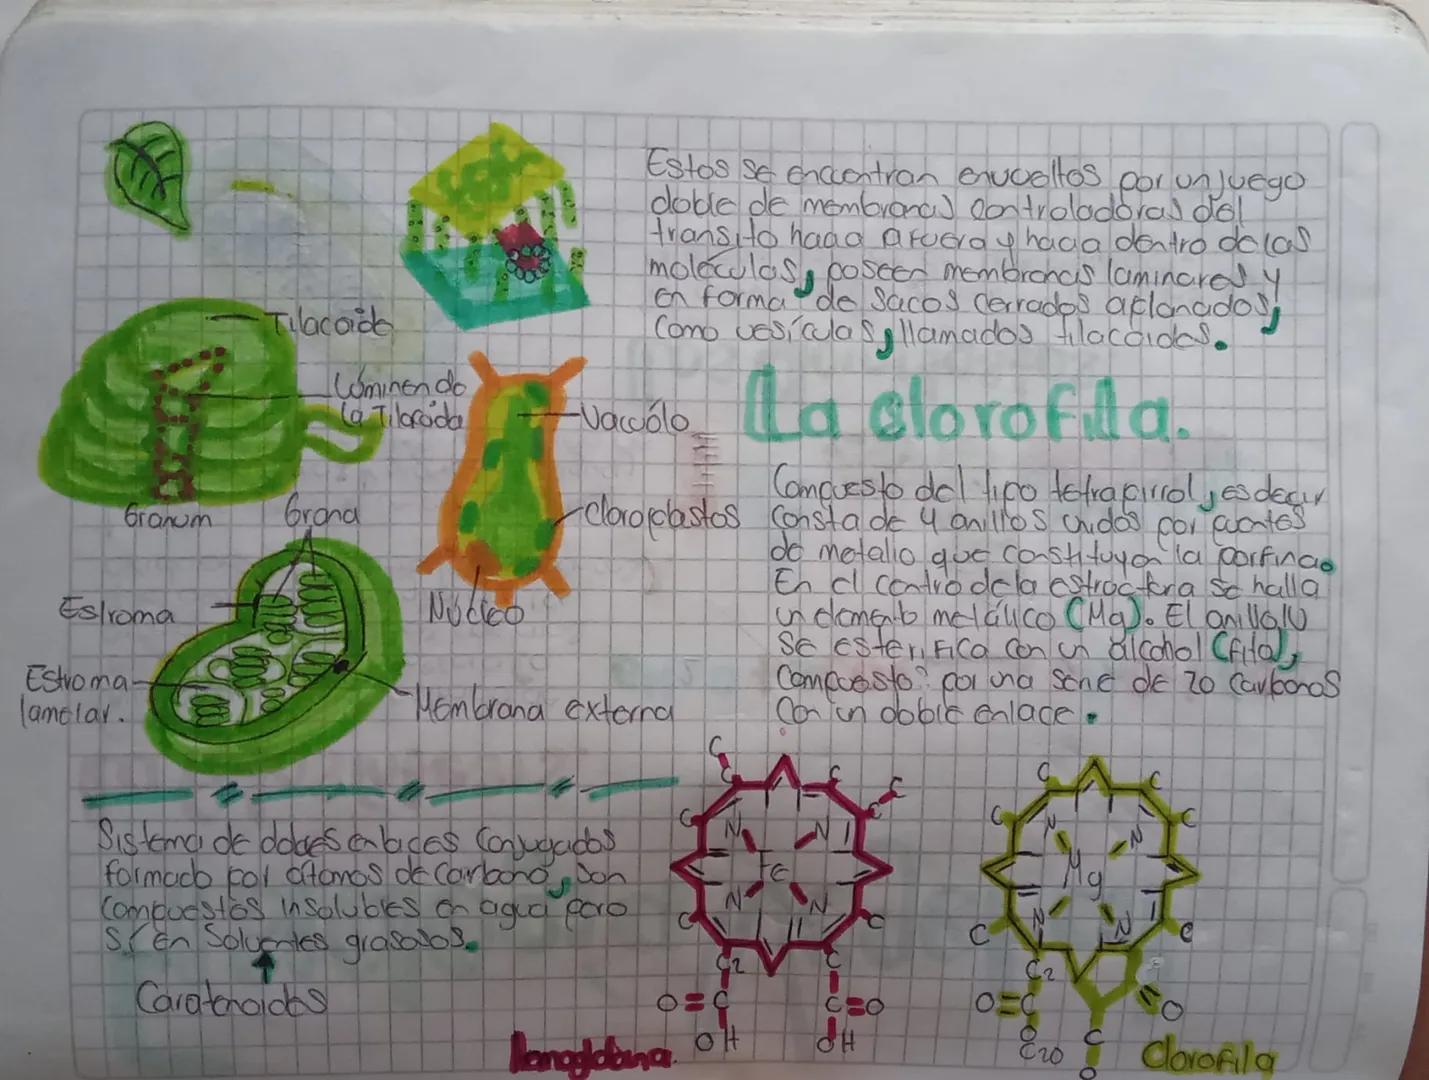 Estos se encuentran envueltos por un juego
doble de membranas controladoras del
transito hacia afuera y hacia dentro de las
moléculas, poseen membranas laminares y
en forma de sacos cerrados aplanados,
como vesículas, llamados tilacoides.
Tilacoide
Lúmen de
la Tilacoide
Granum
Grana
Estroma
Estroma
lamelar.
Membrana externa
Vacuólo
Cloroplastos
Núcleo
La clorofila.
Compuesto del tipo tetrapirrol, es decir
consta de 4 anillos unidos por puentes
de metallo que constituyen la porfina.
En el centro de la estructura se halla
un elemento metálico (Mg). El anillo IV
se esterifica con un alcohol (fitol),
compuesto por una serie de 20 carbonos
con un doble enlace.
Sistema de dobles enlaces conjugados
formado por átomos de carbono, son
compuestos insolubles en agua pero
sí en solventes grasosos.
Carotenoides
C
C C C
C C
N N
Fe
N N
C C
C2 C
O=C C=O
OH OH
Hemoglobina.
C C
C C
N N
Mg
N N
C C
C2
O=C =O
O C
C20 O
Clorofila